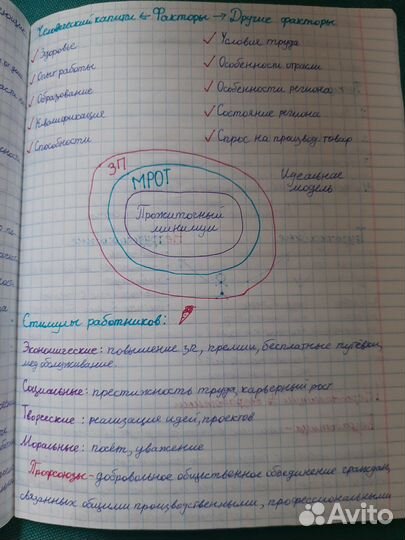 Человеческий капитал ← Факторы → Другие факторы
✓ Здоровье
✓ Условия труда
✓ Опыт работы
✓ Особенности отрасли
✓ Образование
✓ Особенности региона
✓ Квалификация
✓ Состояние региона
✓ Способности
✓ Спрос на производ. товар
ЗП
МРОТ
Прожиточный
минимум
Идеальная
модель
Стимулы работников:
Экономические: повышение ЗП, премии, бесплатные путёвки,
мед. обслуживание.
Социальные: престижность труда, карьерный рост
Творческие: реализация идей, проектов
Моральные: почёт, уважение
Профсоюзы - добровольное общественное объединение граждан,
связанных общими производственными, профессиональными
Avito